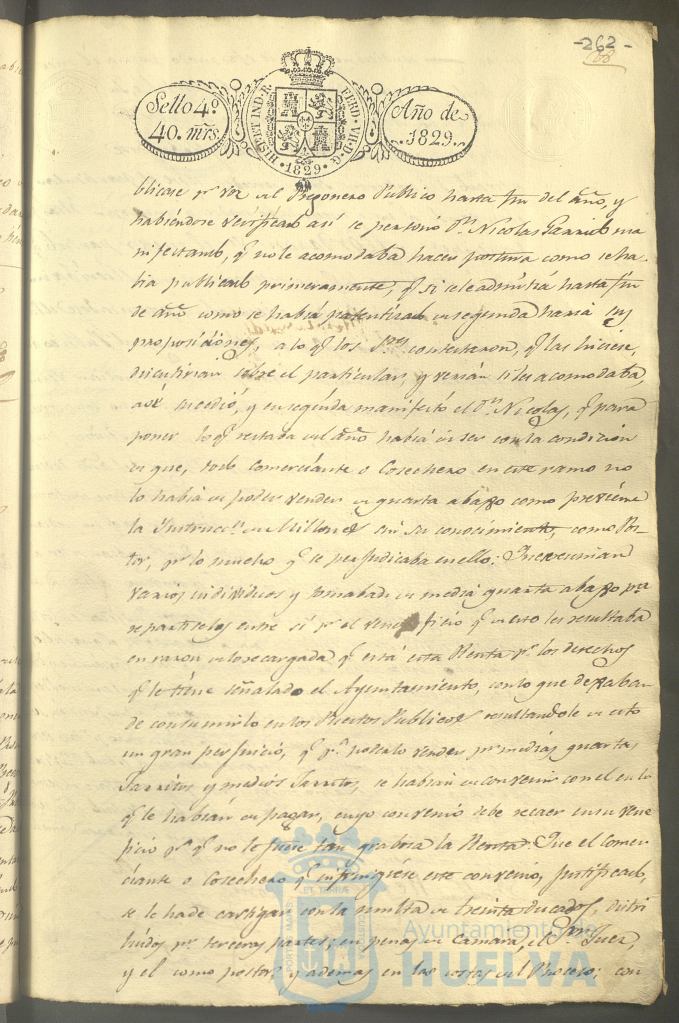 -262-
Sello 4º
40. mrs.
HISP. ET IND. R. FERD. VII. D. G.
1829
Año de
1829.
blicase pr. voz del Pregonero Publico hasta fin del año, y
habiendose verificado asi se personó Dn. Nicolas Garrido ma
nifestando, q. no le acomodaba hacer postura como se ha
bia publicado primeramente, q. si se le admitia hasta fin
de año como se habia en segunda haria sus
proposiciones, a lo q. los Sres. contestaron, q. las hiciese,
discutirian sobre el particular, y verian si les acomodaba,
asi sucedió, y en segunda manifestó el Dn. Nicolas, q. para
poner lo q. restaba del año habia de ser con la condicion
de que, todo Comerciante o Cosechero en este ramo no
lo habia de poder vender de quarta abajo como previene
la Instruccn. de Millones sin su conocimiento, como Pos-
tor, pr. lo mucho q. se perjudicaba en ello: Que se reunian
varios individuos y tomaban de media quarta abajo pra.
repartirselos entre si pr. el veneficio q. de esto les resultaba
en razon de lo recargada q. está esta Renta pr. los derechos
q. le tiene señalado el Ayuntamiento, con lo que dejaban
de consumirlo en los Puestos Publicos resultandole de esto
un gran perjuicio, q. pa. poderlo vender pr. medias quartas
Jarritos y medios Jarritos, se habian de convenir con el en lo
q. le habian de pagar, cuyo convenio debe recaer en su vene
ficio pa. q. no le fuese tan grabosa la Renta: Que el Comer
ciante o Cosechero q. infringiese este convenio, justificado,
se le ha de castigar con la multa de treinta Ducados, distri
buidos pr. terceras partes, en penas de Camara, el Sor. Juez,
y el como postor, y ademas en las costas del Proceso; con
Ayuntamiento de
HUELVA